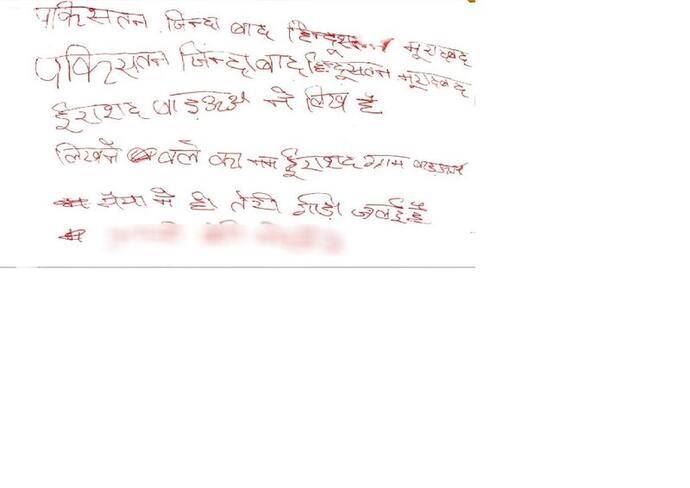 पकिसतन जिन्दा बाद हिन्दूस मूरादबद
पकिसतन जिन्दाबाद हिन्दूसतन मूरादबद
ईराशद बाड़अअ ने लिख है
लिखने वले का नम ईराशद ग्राम
मेमा ने ही तेरी गाड़ी जलईहै